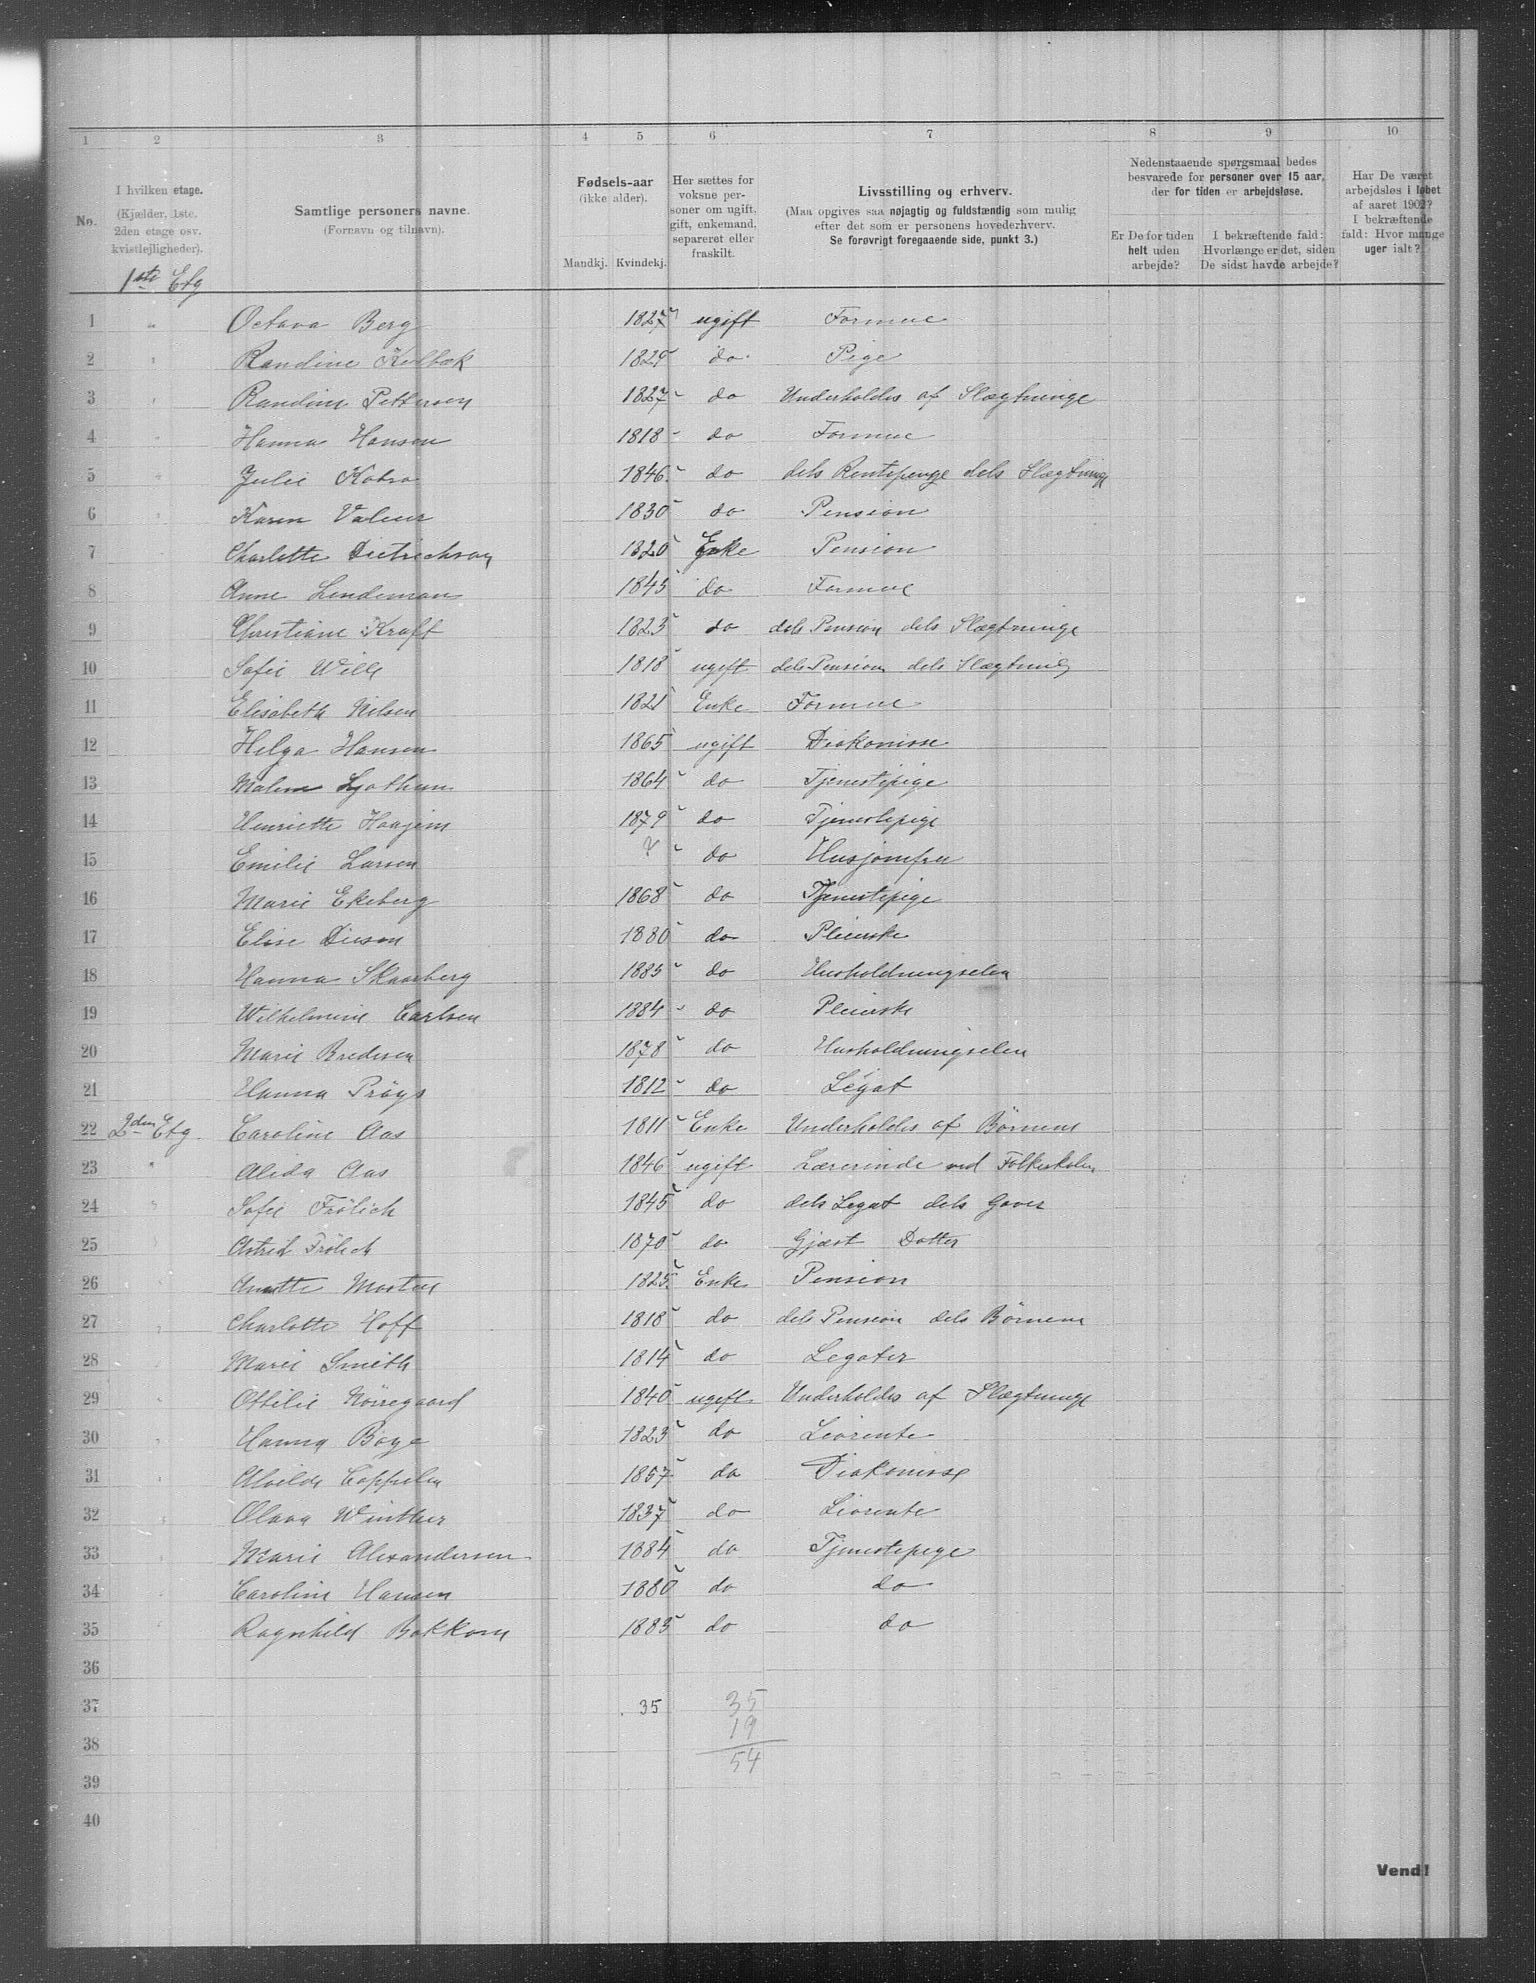 1 2 3 4 5 6 7 8 9 10
No.
I hvilken etage.
(Kjælder, 1ste.
2den etage osv.
kvistlejligheder).
Samtlige personers navne.
(Fornavn og tilnavn).
Fødsels-aar
(ikke alder).
Mandkj. Kvindekj.
Her sættes for
voksne per-
soner om ugift,
gift, enkemand,
separeret eller
fraskilt.
Livsstilling og erhverv.
(Maa opgives saa nøjagtig og fuldstændig som mulig
efter det som er personens hovederhverv.
Se forøvrigt foregaaende side, punkt 3.)
Nedenstaaende spørgsmaal bedes
besvarede for personer over 15 aar,
der for tiden er arbejdsløse.
Er De for tiden
helt uden
arbejde?
I bekræftende fald:
Hvorlænge er det, siden
De sidst havde arbejde?
Har De været
arbejdsløs i løbet
af aaret 1902?
I bekræftende
fald: Hvor mange
uger ialt?
1ste Etg
1 " Octava Berg 1827 ugift Formue
2 " Randine Kolbæk 1829 do Pige
3 " Randine Pettersen 1827 do Underholdes af Slægtninge
4 " Hanna Hansen 1818 do Formue
5 " Julie 1846 do dels Rentepenge dels Slægtninge
6 " Karen Valeur 1830 do Pension
7 Charlotte Dietrichson 1820 Enke Pension
8 Anne Lindeman 1845 do Formue
9 Christiane Kraft 1823 do dels Pension dels Slægtninge
10 Sofie Wille 1818 ugift dels Pension dels Slægtning
11 Elisabeth Nilsen 1821 Enke Formue
12 Helga Hansen 1865 ugift Diakonisse
13 Malene 1864 do Tjenestepige
14 Henriette 1879 do Tjenestepige
15 Emilie Larsen ? do Husjomfru
16 Marie Ekeberg 1868 do Tjenestepige
17 Elise 1880 do Pleierske
18 Hanna Skaarberg 1885 do Husholdningselev
19 Wilhelmine Carlsen 1884 do Pleierske
20 Marie Bredesen 1878 do Husholdningselev
21 Hanna Prøys 1812 do Legat
22 2den Etg. Caroline Aas 1811 Enke Underholdes af Børnene
23 " Alida Aas 1846 ugift Lærerinde ved Folkeskolen
24 " Sofie Frölich 1845 do dels Legat dels Gaver
25 " Astrid Frölich 1870 do Gjæst Datter
26 " Anette 1825 Enke Pension
27 " Charlotte Hoff 1818 do dels Pension dels Børnene
28 " Marie Smith 1814 do Legater
29 " Ottilie Nörregaard 1840 ugift Underholdes af Slægtninge
30 " Hanna Boye 1823 do Livrente
31 " Alvilde Cappelen 1857 do Diakonisse
32 " Olava Winther 1837 do Livrente
33 " Marie Alexandersen 1884 do Tjenestepige
34 " Caroline Hansen 1880 do do
35 " Ragnhild 1883 do do
36
37 35 35
38 19
54
39
40
Vend!